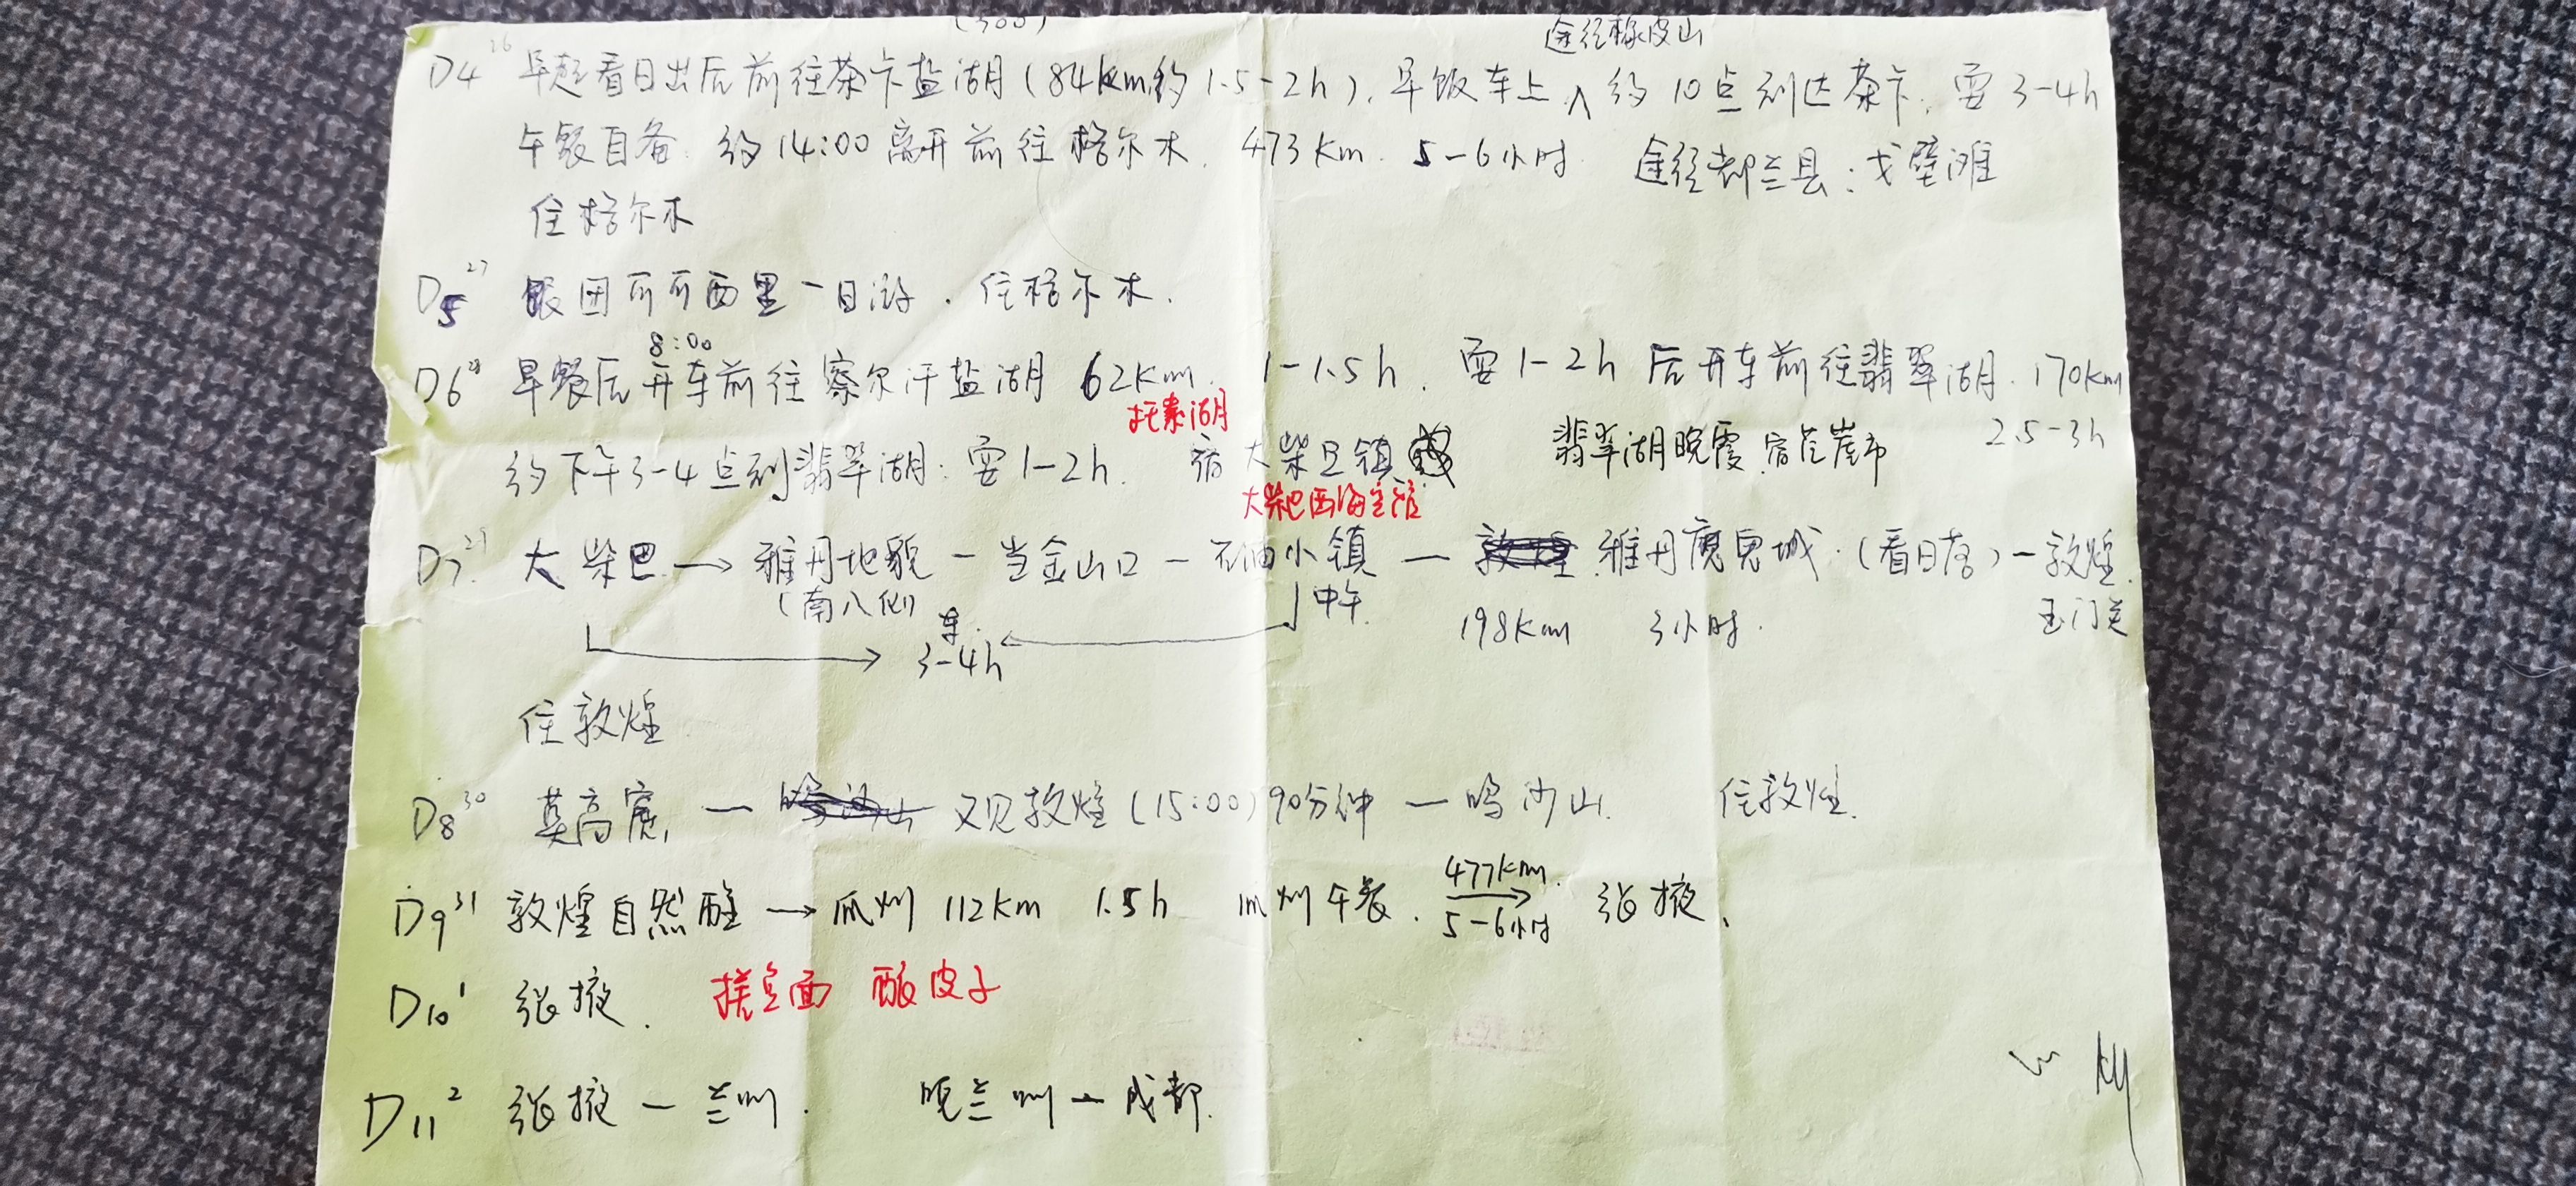 (300)
途径橡皮山
D4 26 早起看日出后前往茶卡盐湖(84km约1.5-2h),早饭车上∧约10点到达茶卡,耍3-4h
午餐自备 约14:00离开前往格尔木. 473km. 5-6小时 途径都兰县:戈壁滩
住格尔木
D5 27 跟团可可西里一日游.住格尔木.
8:00
D6 28 早餐后开车前往察尔汗盐湖 62km. 1-1.5h. 耍1-2h 后开车前往翡翠湖.170km
托素湖 2.5-3h
约下午3-4点到翡翠湖:耍1-2h. 宿大柴旦镇 翡翠湖晚霞.宿茫崖市
大柴巴西海宾馆
D7 29 大柴巴→雅丹地貌-当金山口-石油小镇—雅丹魔鬼城.(看日落)-敦煌.
(南八仙) 中午. 198km 3小时. 玉门关
车.
3-4h
住敦煌
D8 30 莫高窟—鸣沙山 又见敦煌(15:00)90分钟—鸣沙山. 住敦煌.
477km.
D9 31 敦煌自然醒→瓜州 112km 1.5h 瓜州午餐. → 张掖.
5-6小时
D10 1 张掖. 搓鱼面 酿皮子
D11 2 张掖—兰州. 晚兰州—成都.